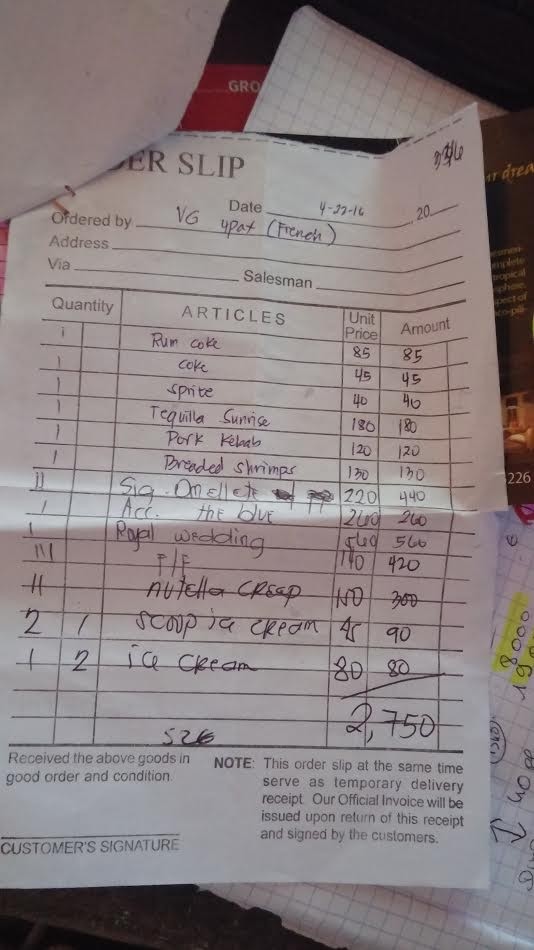 GRO
ER SLIP
Date 4-22-16 , 20
Ordered by VG 4pax (French)
Address
Via Salesman
Quantity ARTICLES Unit Price Amount
1 Rum coke 85 85
1 coke 45 45
1 sprite 40 40
1 Tequilla Sunrise 180 180
1 Pork Kebab 120 120
1 Breaded shrimps 130 130
II Sig. Omellete 220 440
1 Acc. the blue 260 260
1 Royal wedding 560 560
III F/F 140 420
II nutella creap 150 300
2 1 scoop ice cream 45 90
1 2 ice cream 80 80
2,750
526
Received the above goods in
good order and condition.
CUSTOMER'S SIGNATURE
NOTE: This order slip at the same time
serve as temporary delivery
receipt. Our Official Invoice will be
issued upon return of this receipt
and signed by the customers.
ur drea
226
8000